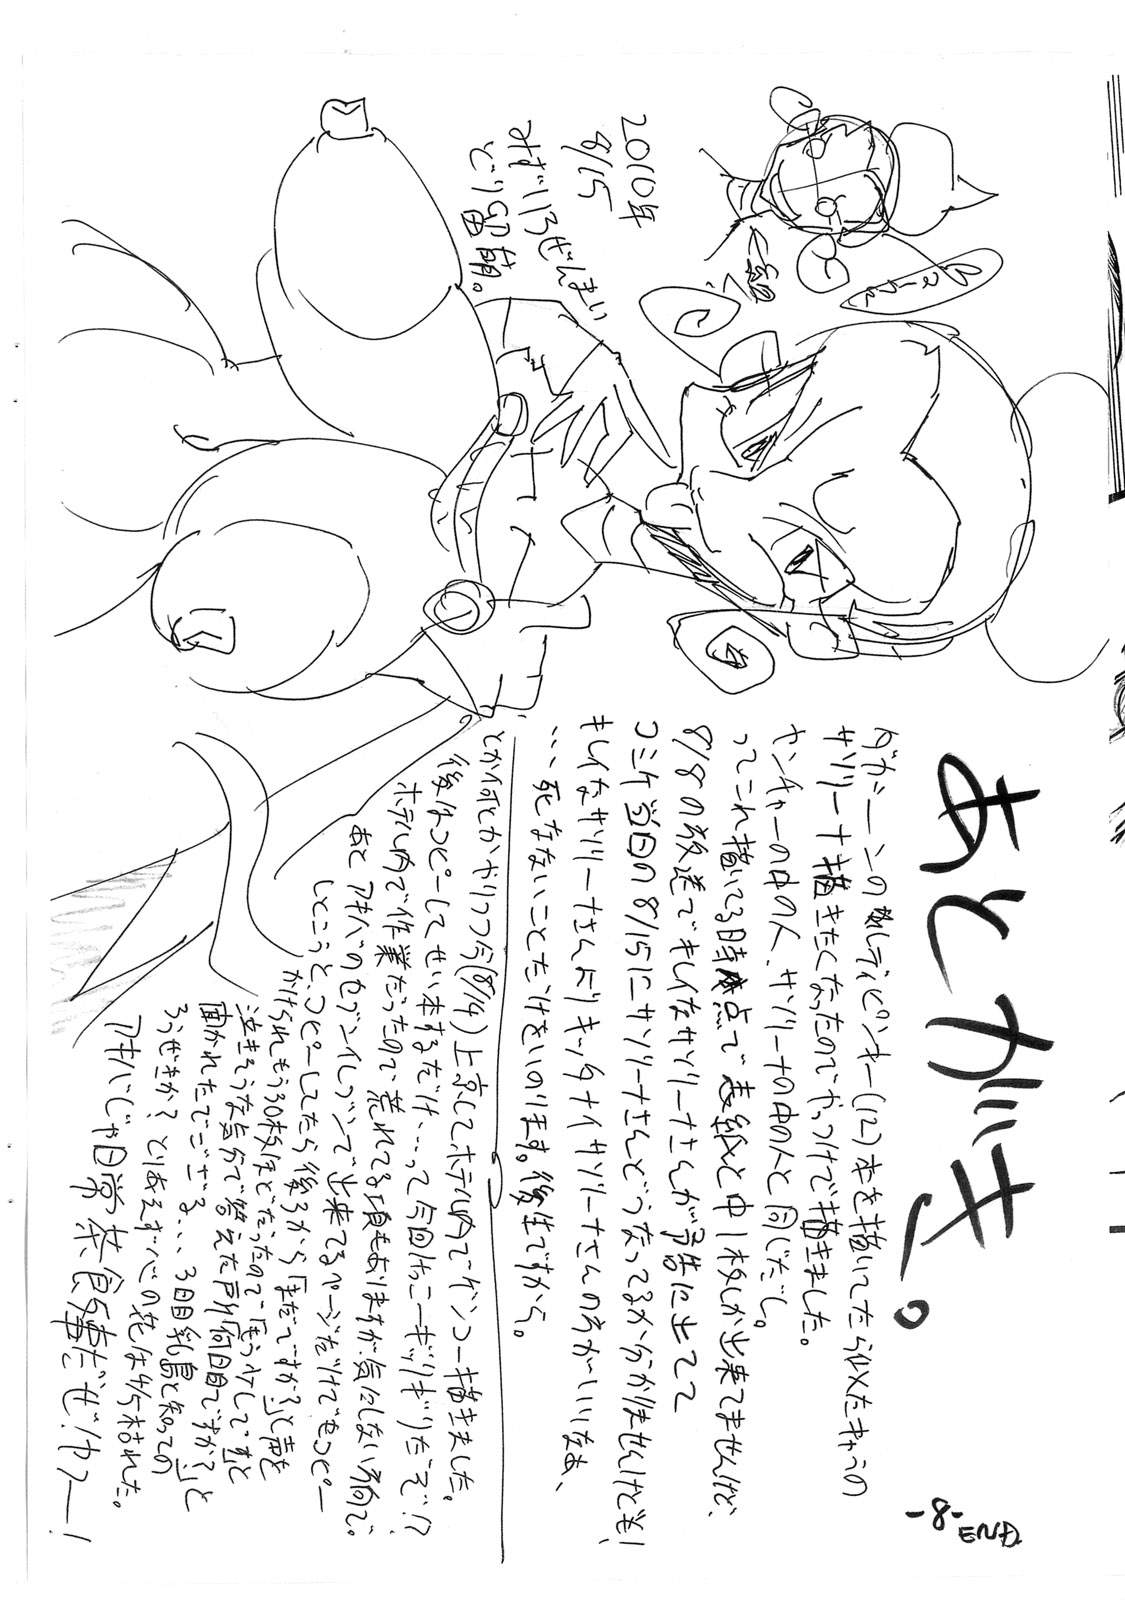 あとがき。
ダカーンのレディピンキー(12)本を描いてたら似たキャラの
サソリーナ描きたくなったのでやっつけで描きました。
ヤンチャーの中の人、サソリーナの中の人と同じだし。
ってこれ描いてる時点で表紙と中1枚しか出来てませんけど、
8/8の放送でキレイなサソリーナさんが予告に出てて
コミケ当日の8/15にサソリーナさんどうなってるか分かりませんけども!
キレイなサソリーナさんよりキッタナイサソリーナさんの方がいいなぁ、
…死なないことだけをいのります。後生ですから。
とか何とかやりつつ今(8/14)上京してホテル内でゲンコー描きました。
後はコピーしてせい本するだけ…って今回けっこーギッリギリだぞ!?
ホテル内で作業だったので荒れてる頃もありますが気にしない方向で。
あとアキバのセブンイレブンで出来てるページだけでもコピー
しとこうと、コピーしてたら後ろから「まだですか?」と声を
かけられもう30枚ほどだったので「もう少しです」と
泣きそうな気分で答えた所「何日目ですか?」と
聞かれたでござる、、、3日目乳島と知っての
ろうぜきか? とりあえず心の花は少ら枯れた。
アキバじゃ日常茶飯事だぜ!ひゃっー!
2010年
8/15
みずいろぜんまい
どり留萌。
-8-
END